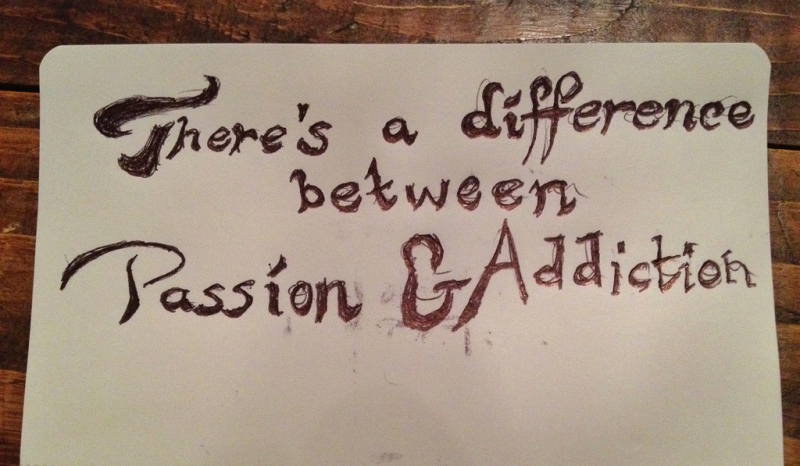 There's a difference
between
Passion & Addiction